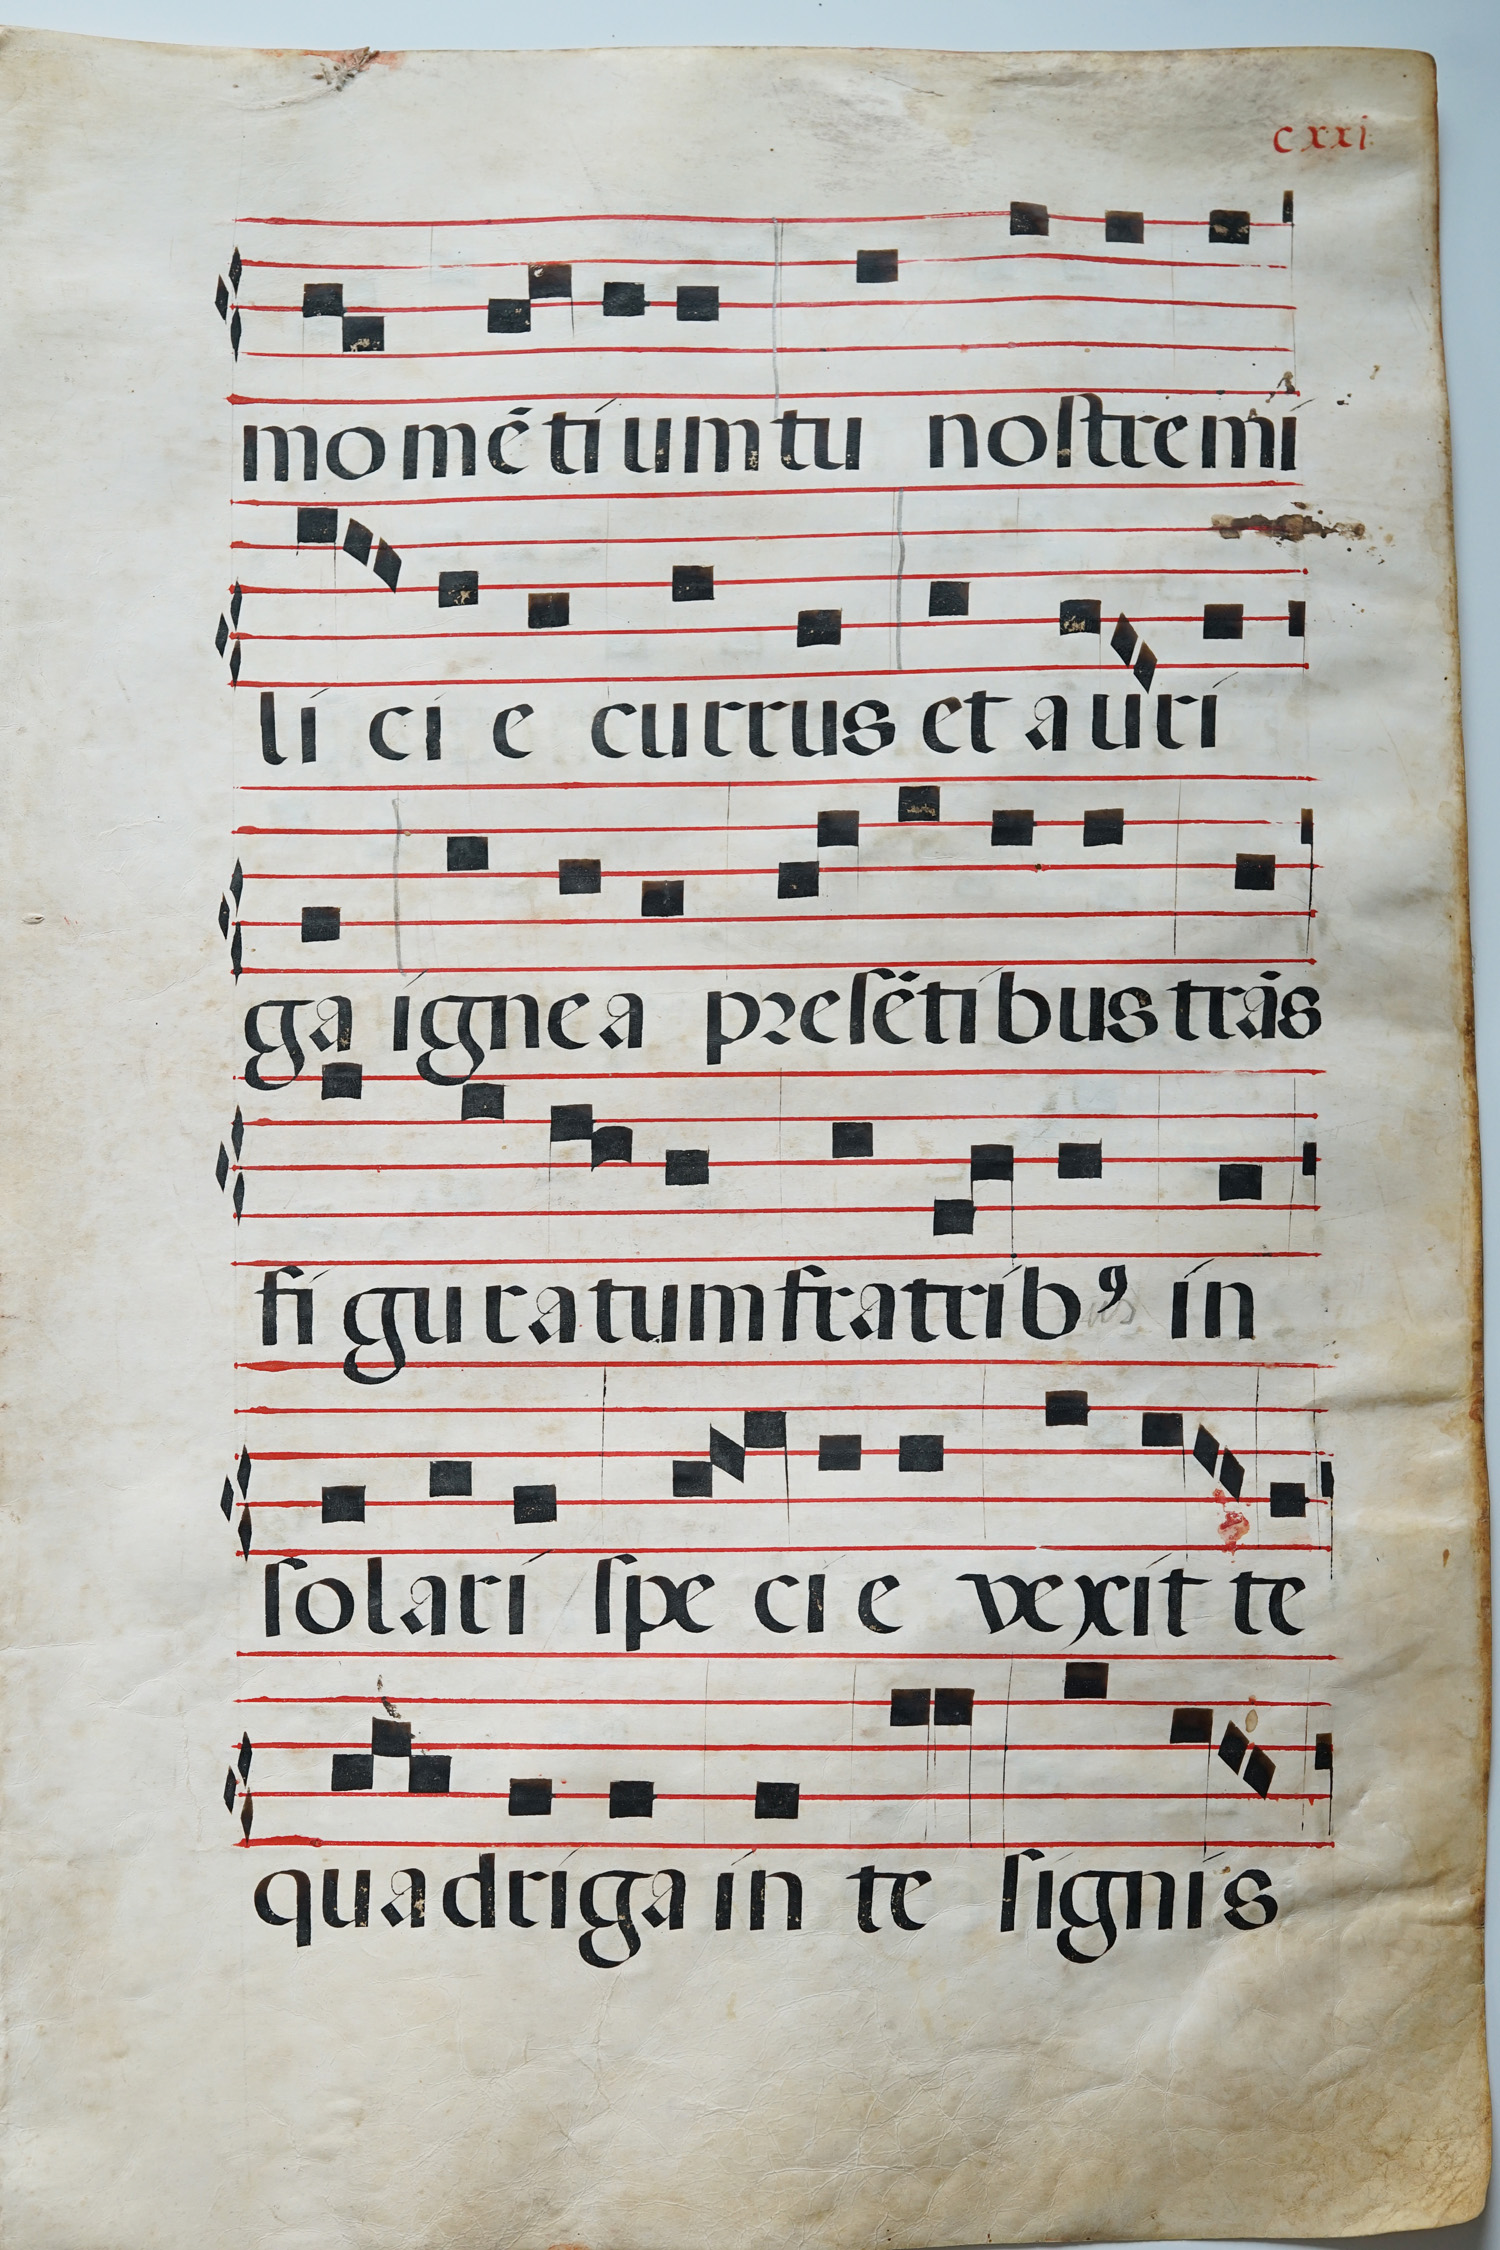 cxxi
momētium tu nostre mi
li ci e currus et auri
ga ignea presētibus trās
fi guratum fratribꝰ in
solari spe ci e vexit te
quadriga in te signis